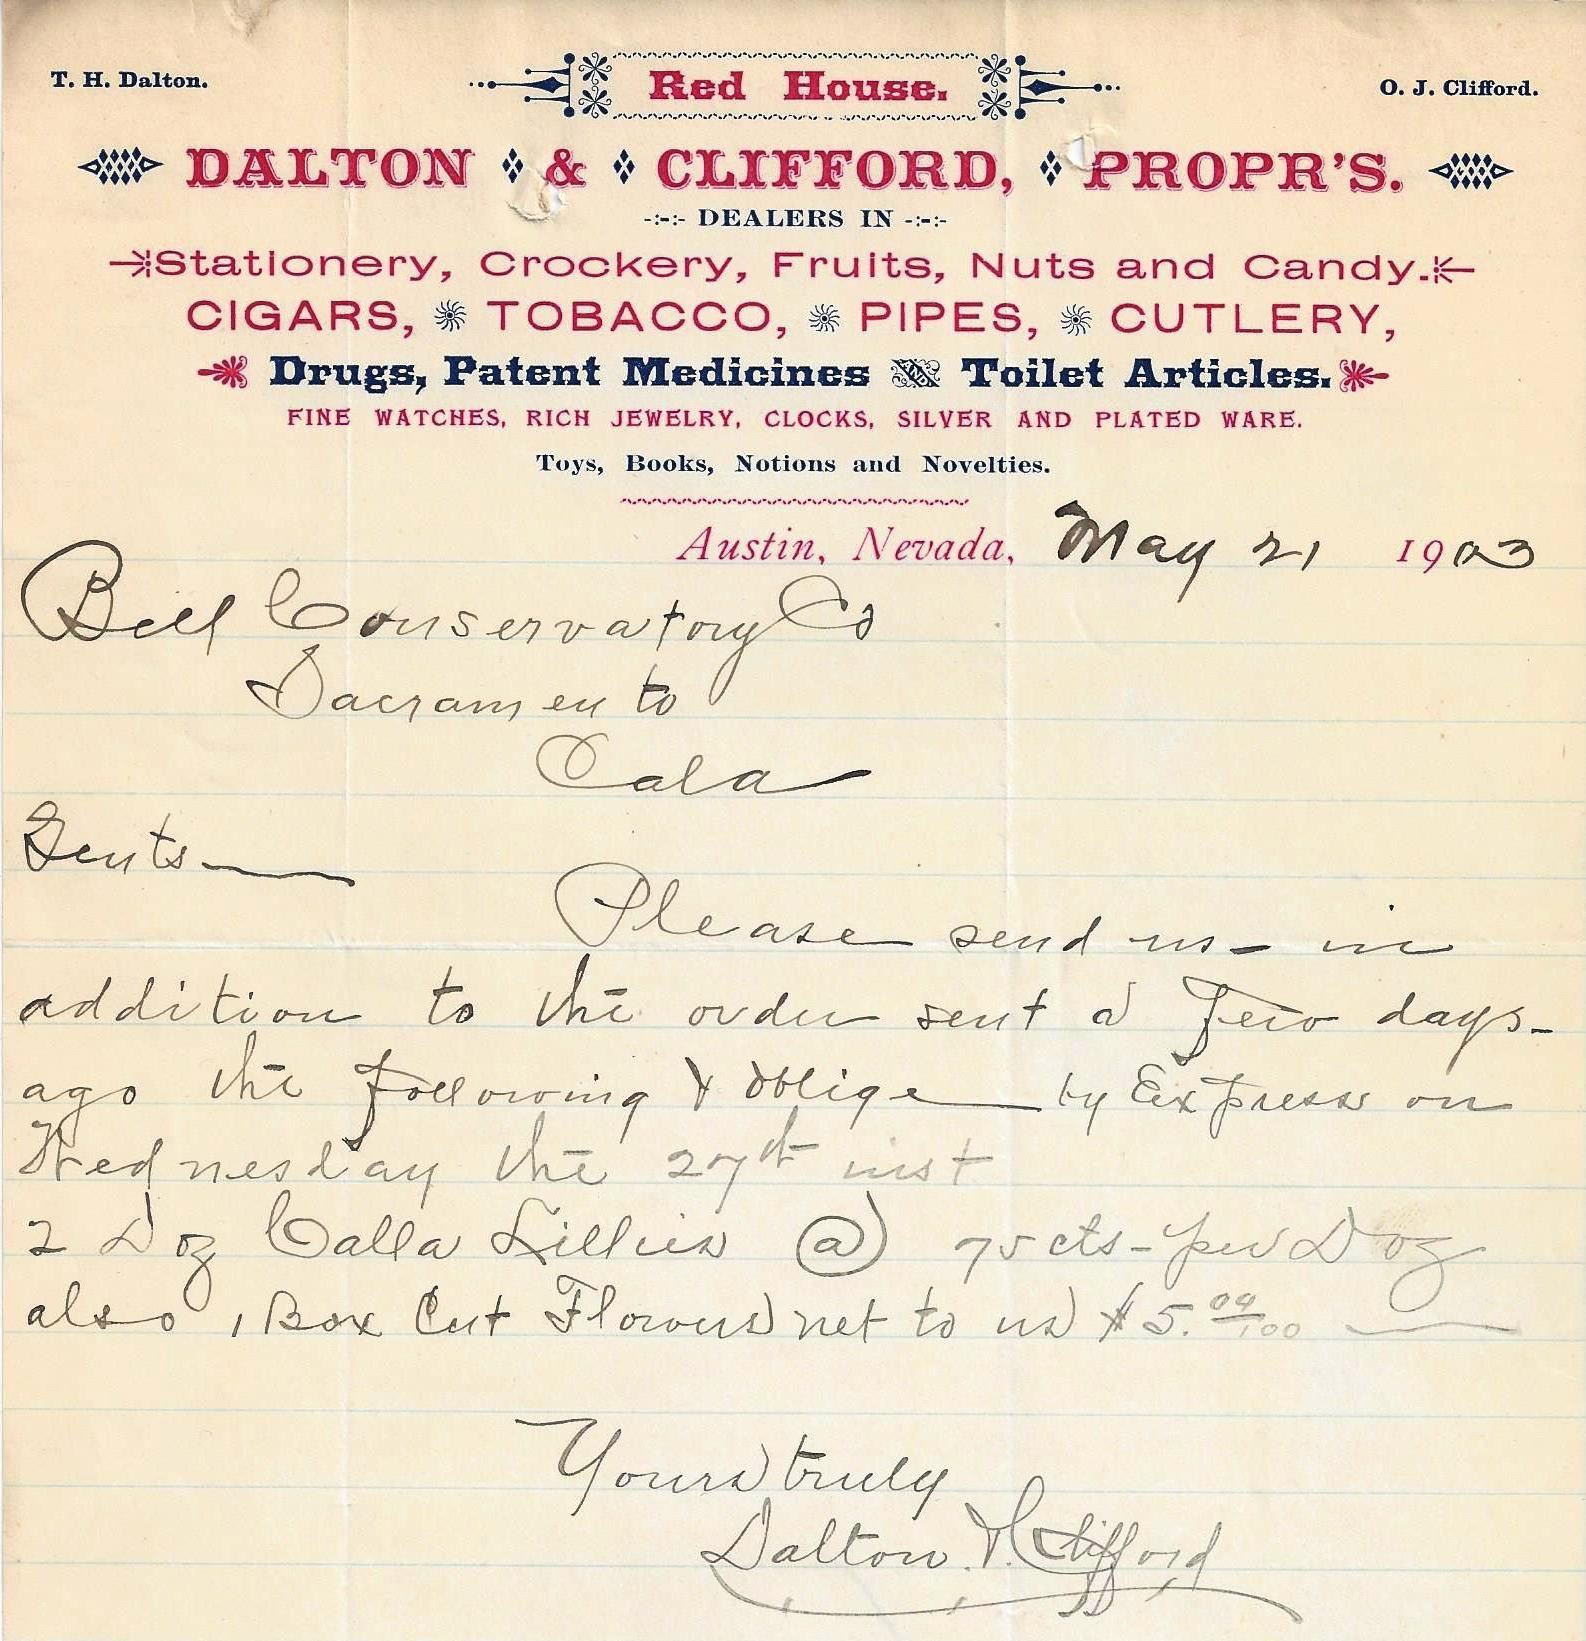 T. H. Dalton.
Red House.
O. J. Clifford.
DALTON & CLIFFORD, PROPR'S.
DEALERS IN
Stationery, Crockery, Fruits, Nuts and Candy.
CIGARS, TOBACCO, PIPES, CUTLERY,
Drugs, Patent Medicines Toilet Articles.
FINE WATCHES, RICH JEWELRY, CLOCKS, SILVER AND PLATED WARE.
Toys, Books, Notions and Novelties.
Austin, Nevada, May 21 1903
Bell Conservatory Co
Sacramento
Cala
Gents
Please send us - in
addition to the order sent a few days -
ago the following & oblige by Express on
Wednesday the 27th inst
2 Doz Calla Lillies @ 75 cts - per Doz
also 1 Box Cut Flowers net to us $5.00/100
Yours truly
Dalton & Clifford